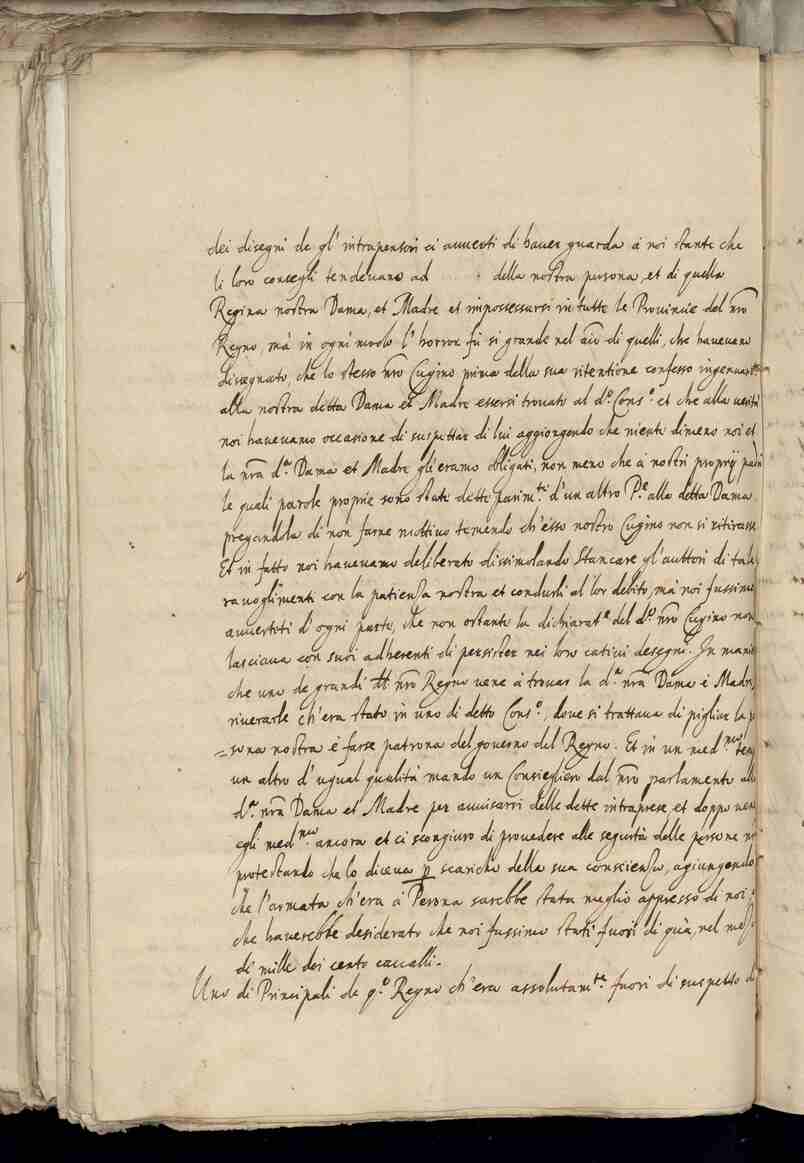 dei disegni de gl' intraprensori ci auuerti di hauer guarda à noi stante che
li loro consegli tendeuano ad della nostra persona, et di quella
Regina nostra Dama, et Madre et impossessarsi in tutte le Prouincie del nro
Regno, mà in ogni modo l' horror fù si grande nel aio di quelli, che haueuano
dissegnato, che lo stesso nro Cugino prima della sua ritentione confesso ingenuam.te
alla nostra detta Dama et Madre essersi trouato al d.o Cons.o et che alla uerità
noi haueuamo occasione di suspettar di lui aggiongendo che niente dimeno noi et
la nra d.a Dama et Madre gli eramo obligati, non meno che à nostri proprij padri
le quali parole proprie sono state dette parim.ti d'un altro P.e alla detta Dama
pregandola di non farne mottiuo temendo ch'esso nostro Cugino non si ritirasse
Et in fatto noi haueuamo deliberato dissimolando stancare gl'auttori di tale
rauoglimenti con la patienza nostra et condurli al lor debito, mà noi fussimo
auuertiti d'ogni parte, che non ostante la dichiarat.e del d.o nro Cugino non
lasciaua con suoi adherenti di persister nei loro catiui desegni. In manie
che uno de grandi nro Regno uene à trouar la d.a nra Dama è Madre,
riuerarle ch'era stato in uno di detto Cons.o, doue si trattaua di pigliar la p
=sona nostra è farse patrona del gouerno del Regno. Et in un med.mo temp
un altro d'ugual qualità mando un Consiegliero dal nro parlamento alla
d.a nra Dama et Madre per auuisarri delle dette intraprese, et doppo uene
egli med.mo ancora et ci scongiuro di prouedere alle segurtà delle persone nr
protestando che lo diceua p scaricho della sua conscienza, agiungendo
che l'armata ch'era à Perona sarebbe stata meglio appresso di noi,
che hauerebbe desiderato che noi fussimo stati fuori di quà, nel mezo
di mille dei cento caualli.
Uno di Principali de q.o Regno ch'era assolutam.te fuori di suspetto d